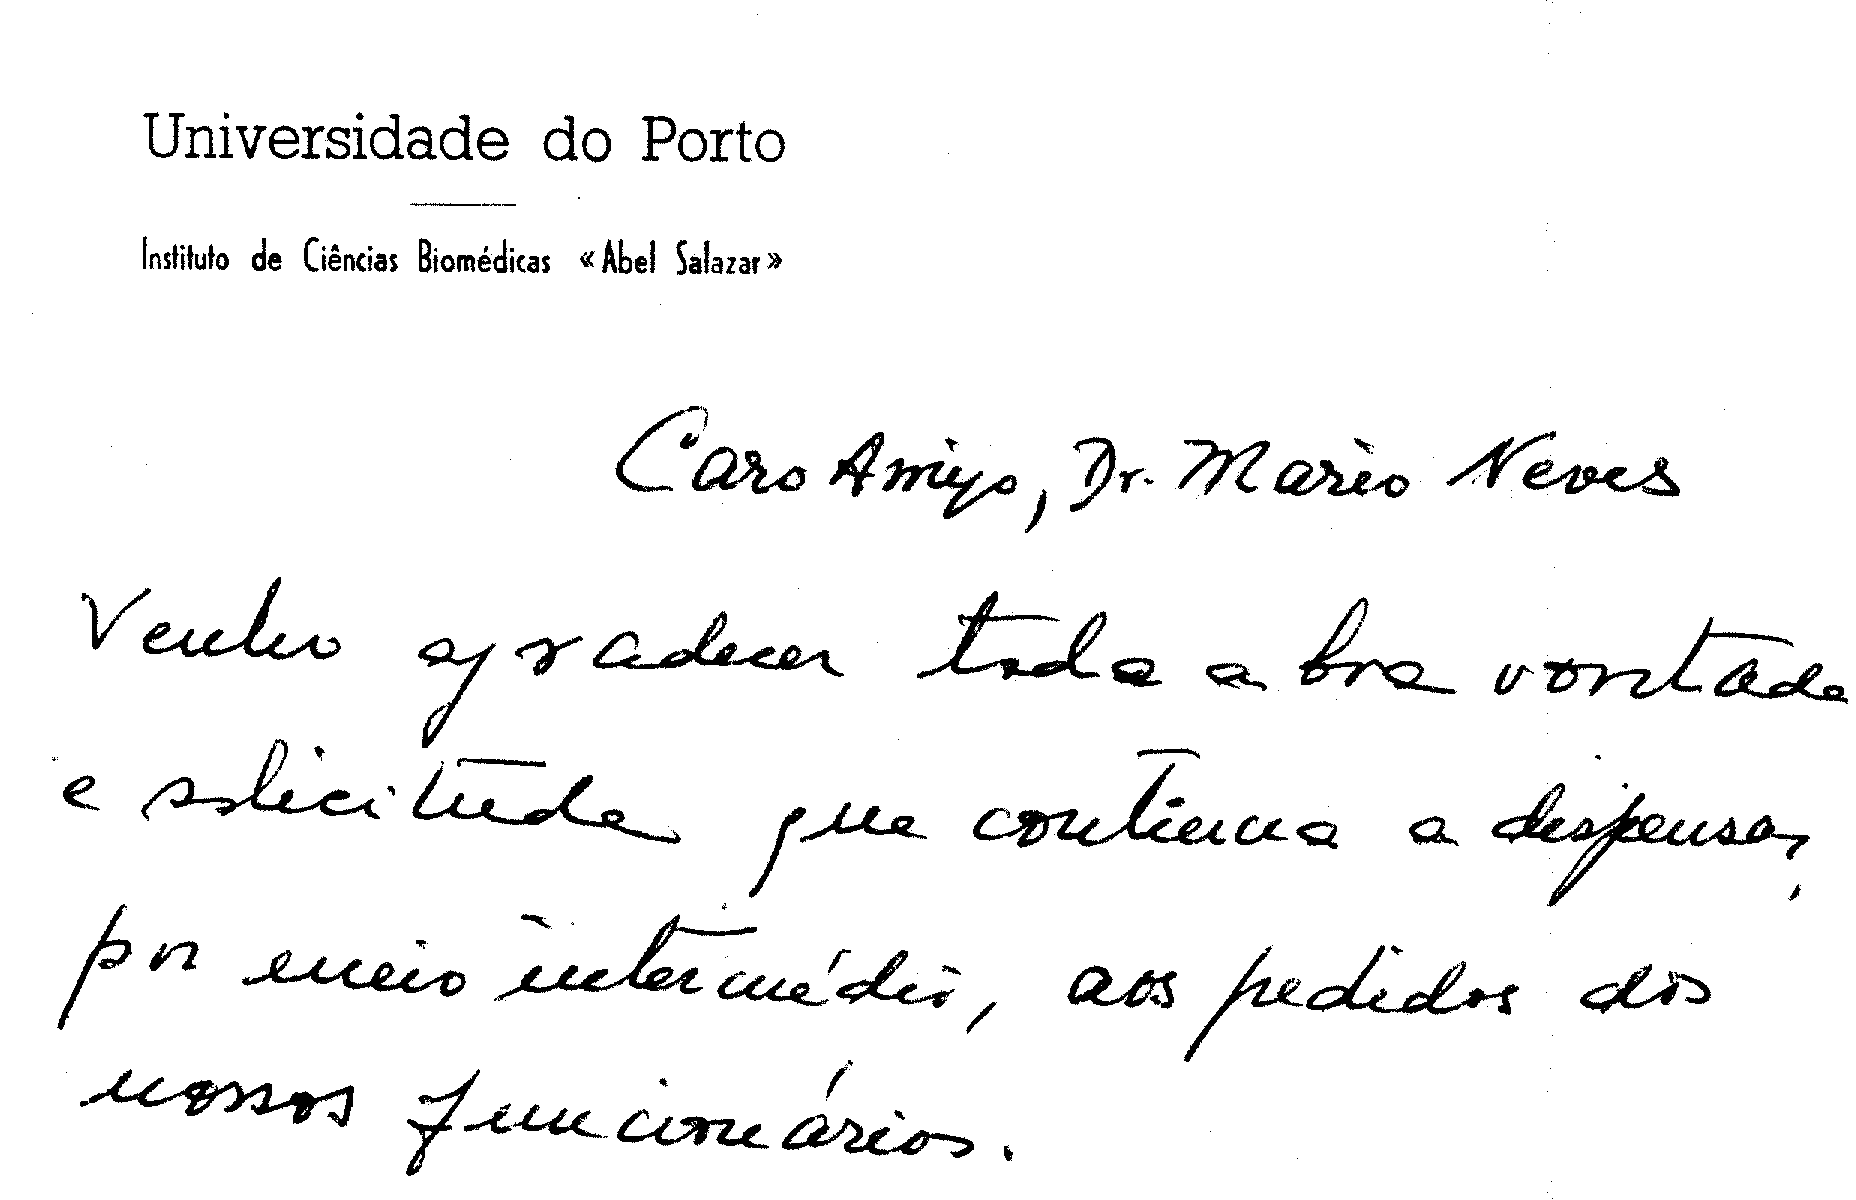 Universidade do Porto
Instituto de Ciências Biomédicas «Abel Salazar»
Caro Amigo, Dr. Mário Neves
Venho agradecer toda a boa vontade
e solicitude que continua a dispensar,
por meu intermédio, aos pedidos dos
nossos funcionários.